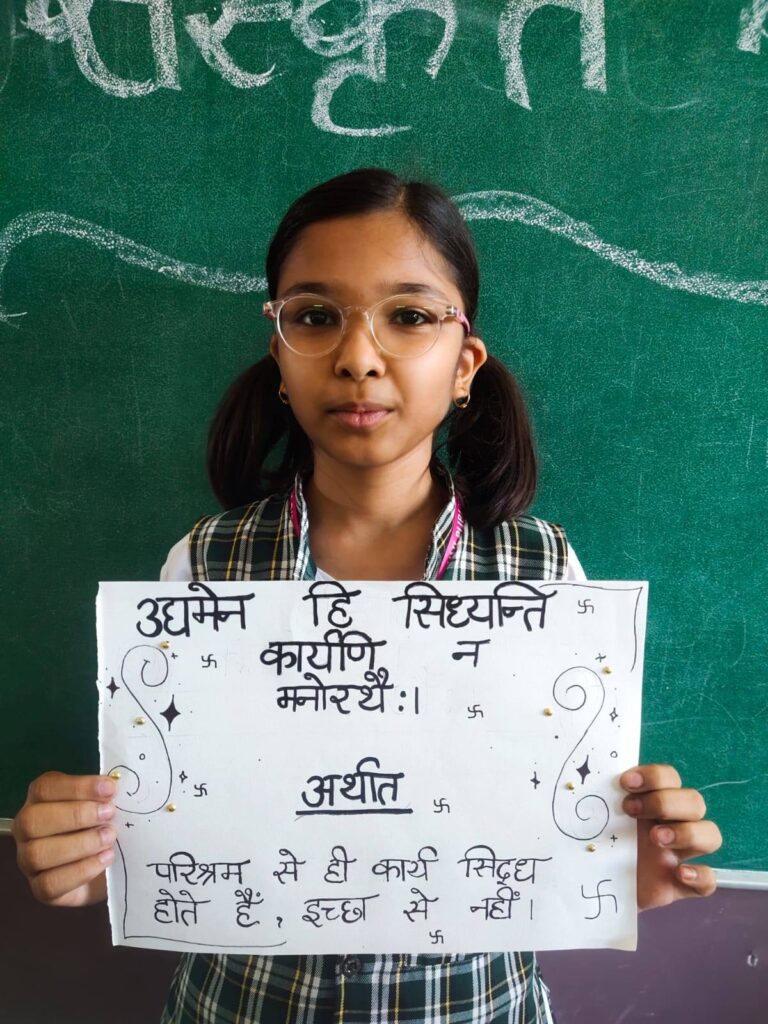 संस्कृत
उद्यमेन हि सिध्यन्ति
कार्याणि न
मनोरथैः।
अर्थात
परिश्रम से ही कार्य सिद्ध
होते हैं, इच्छा से नहीं।